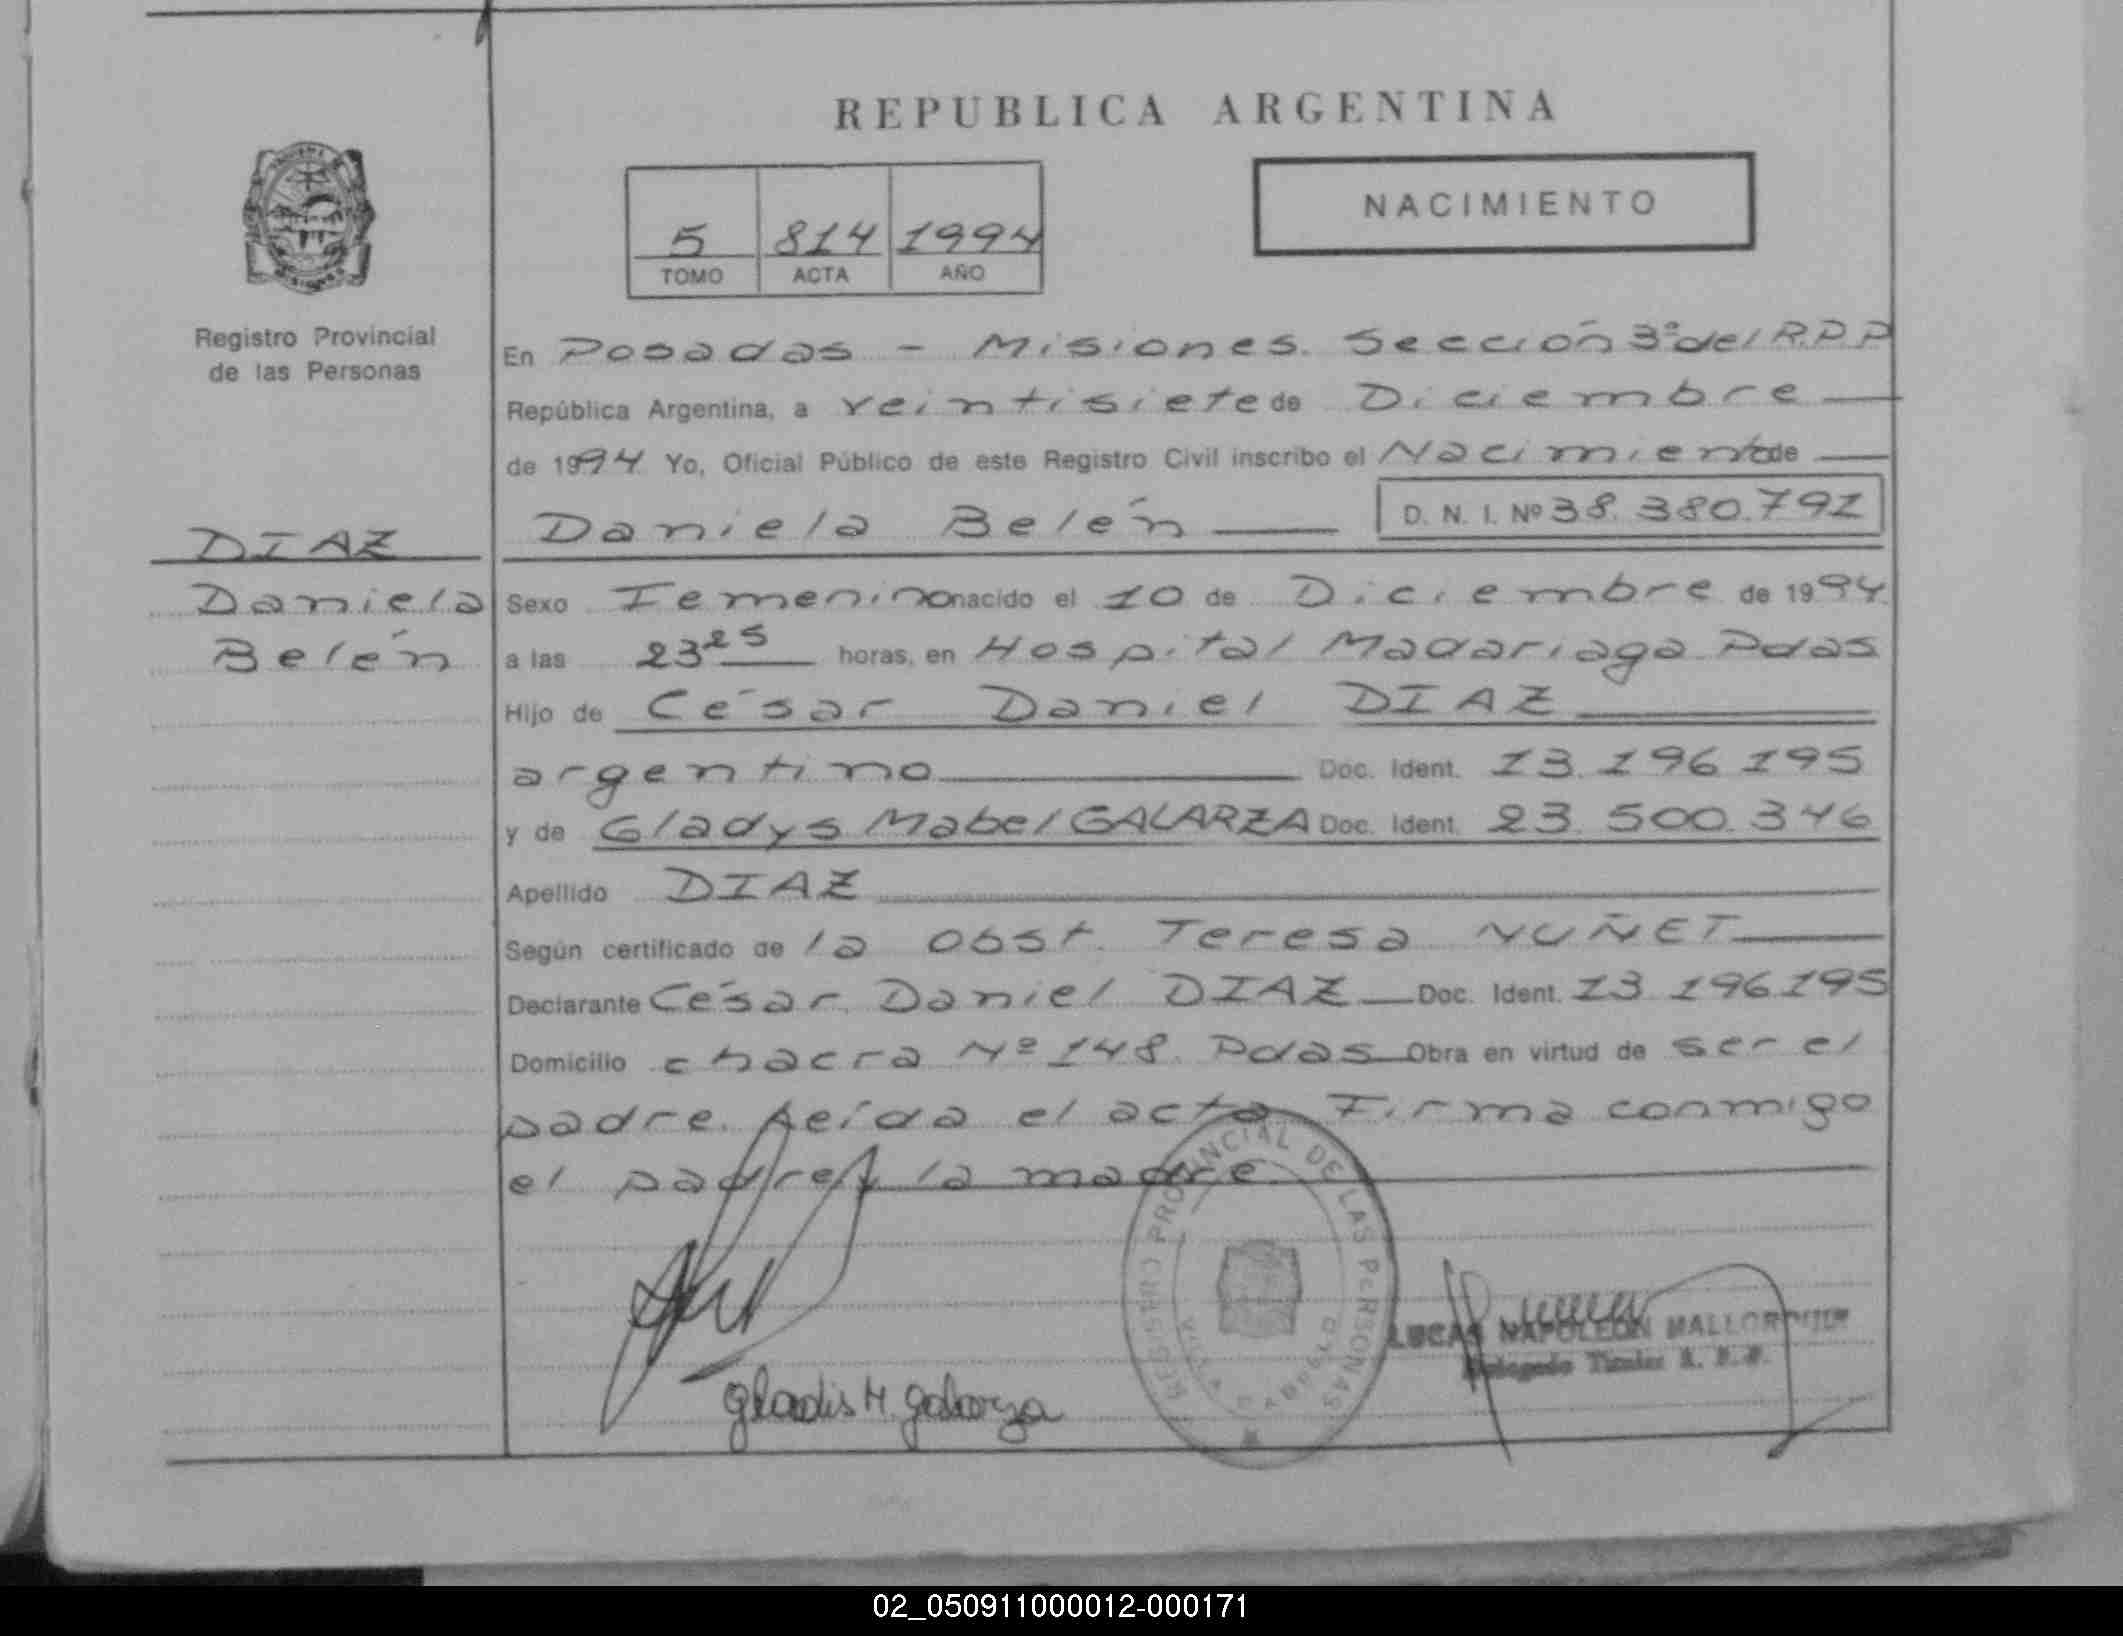 REPUBLICA ARGENTINA
5 814 1994
TOMO ACTA AÑO
NACIMIENTO
Registro Provincial
de las Personas
DIAZ
Daniela
Belén
En Posadas - Misiones. Sección 3ª del R.P.P
República Argentina, a veintisiete de Diciembre
de 1994 Yo, Oficial Público de este Registro Civil inscribo el Nacimiento de
Daniela Belén D. N. I. Nº 38.380.791
Sexo Femenino nacido el 10 de Diciembre de 1994
a las 23 25 horas, en Hospital Madariaga Pdas
Hijo de César Daniel DIAZ
argentino Doc. Ident. 13.196.195
y de Gladys Mabel GALARZA Doc. Ident. 23.500.346
Apellido DIAZ
Según certificado de la Obst. Teresa NUÑET
Declarante César Daniel DIAZ Doc. Ident. 13.196.195
Domicilio chacra Nº 148. Pdas Obra en virtud de ser el
padre. Leída el acta Firma conmigo
el padre y la madre.
REGISTRO PROVINCIAL DE LAS PERSONAS
VILLA CABELLO
Gladis M. Galarza
LUCAS NAPOLEON
Delegado Titular R. P. P.
02_050911000012-000171